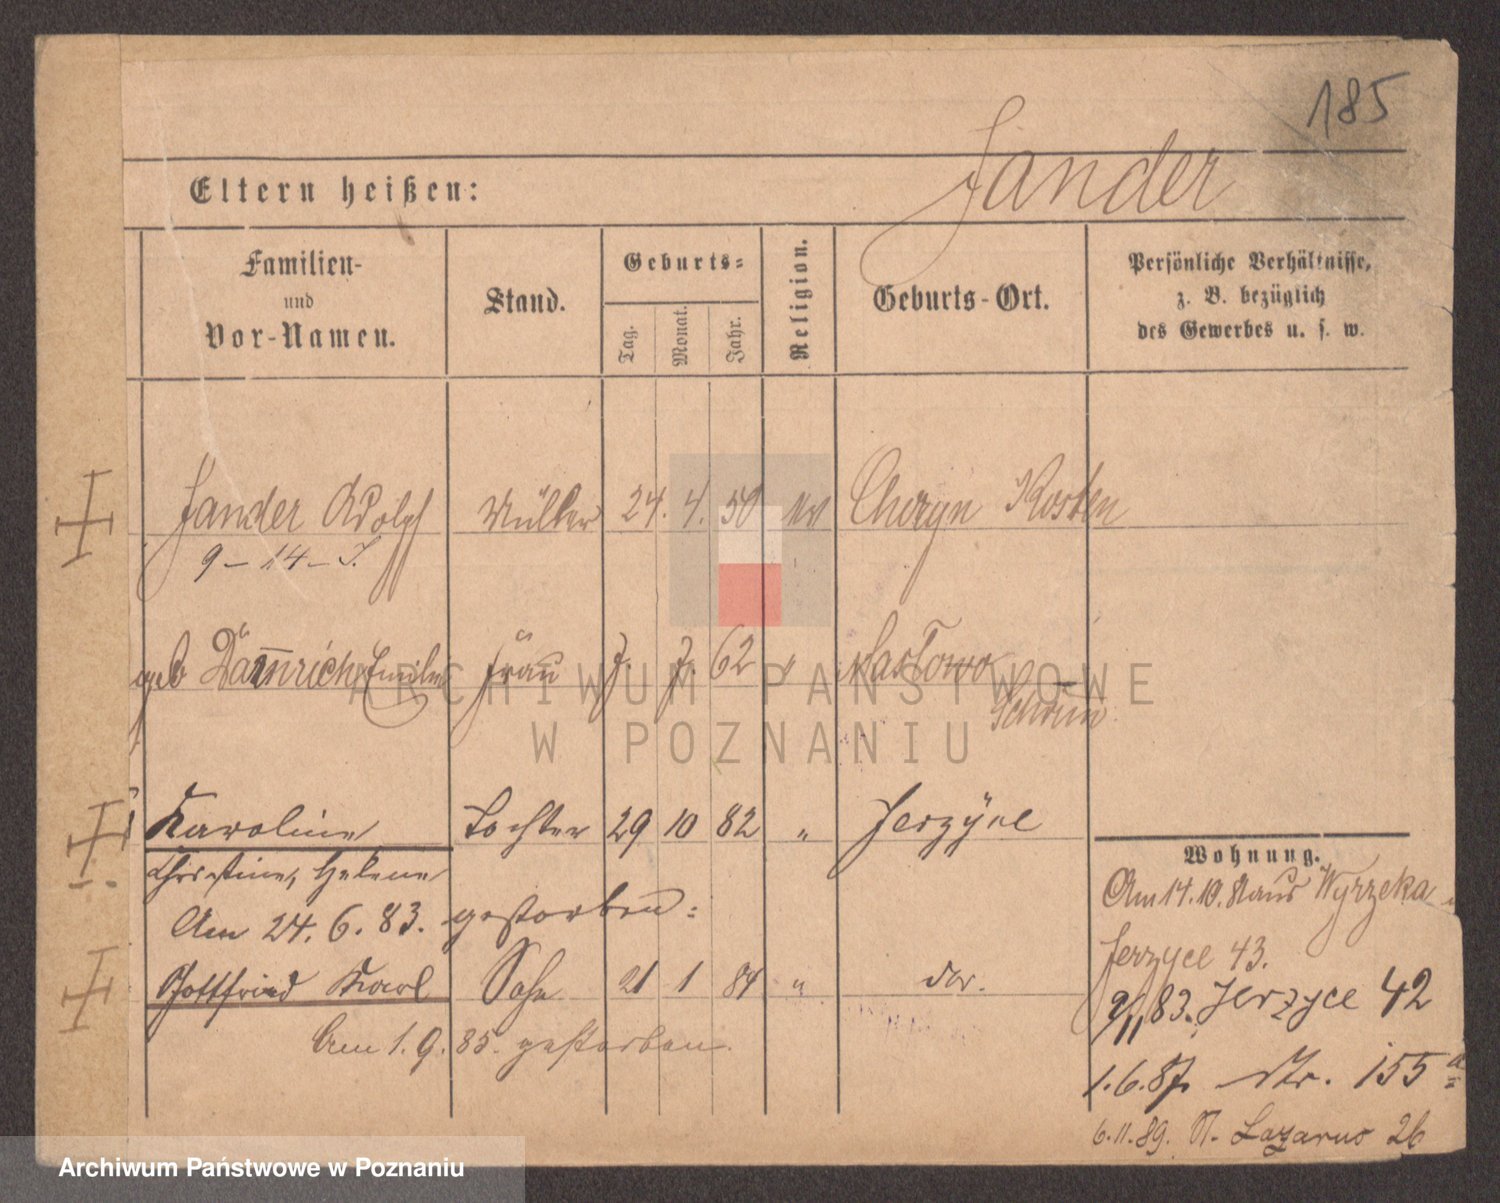 185
Jander
Eltern heißen:
Familien-
und
Vor-Namen.
Stand.
Geburts-
Tag.
Monat.
Jahr.
Religion.
Geburts-Ort.
Persönliche Verhältnisse,
z. B. bezüglich
des Gewerbes u. s. w.
Jander Adolf Müller 24. 4. 50 ev Choryn Kosten
9 - 14 - J.
geb Dämrich Emilie Frau 7. 7. 62 "
Schrim
Karoline Tochter 29 10 82 " Jerzyce
Christine, Helene
Am 24. 6. 83. gestorben:
Gottfried Karl Sohn 21 1 84 " do.
Am 1. 9. 85. gestorben.
Wohnung.
Am 14. 10. aus Wyrzeka
Jerzyce 43.
9/11 83. Jerzyce 42
1. 6. 87 Nr. 155 a
6. 11. 89. St. Lazarus 26
ARCHIWUM PAŃSTWOWE
W POZNANIU
Archiwum Państwowe w Poznaniu